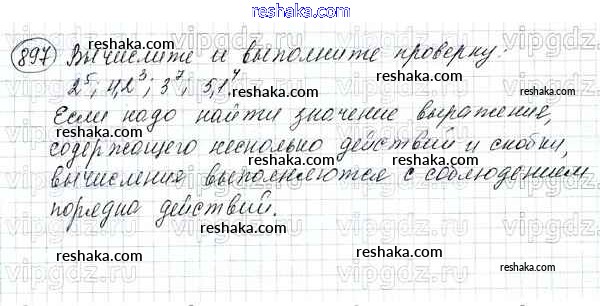 reshaka.com
897 Вычислите и выполните проверку:
2⁵; 4,2³; 3⁷; 5,1⁴
Если надо найти значение выражение,
содержащего несколько действий и скобки,
вычисления выполняются с соблюдением
порядка действий.
reshaka.com
reshaka.com
reshaka.com
reshaka.com
reshaka.com
reshaka.com
reshaka.com
reshaka.com
reshaka.com
reshaka.com
reshaka.com
vipgdz.ru
vipgdz.ru